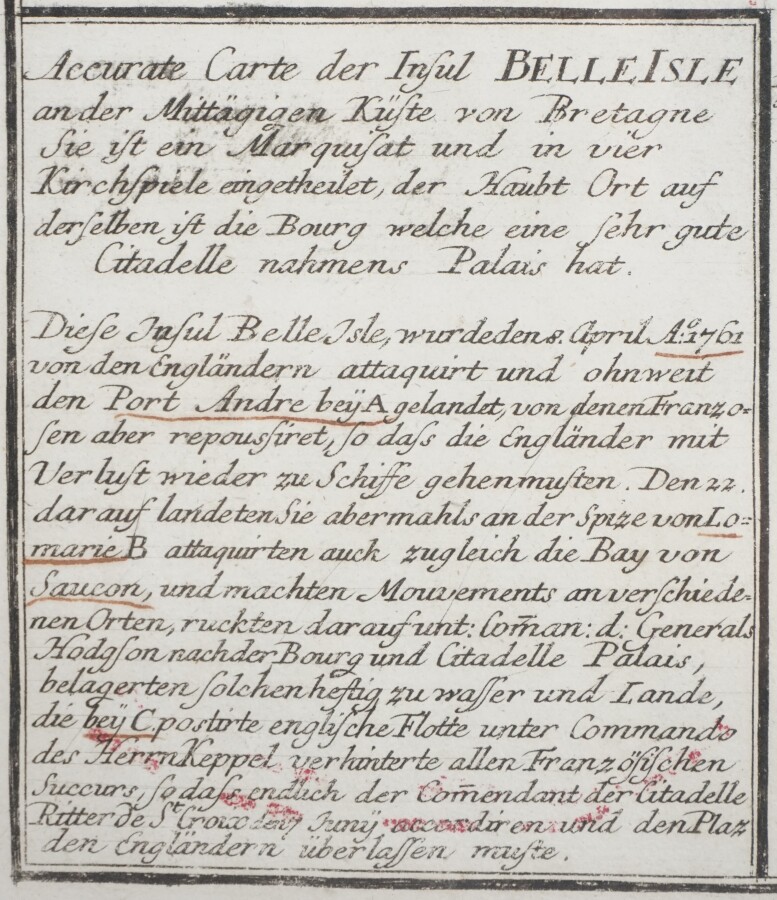 Accurate Carte der Inſul BELLE ISLE
an der Mittägigen Küſte von Bretagne
Sie iſt ein Marquiſat und in vier
Kirchſpiele eingetheilet, der Haubt Ort auf
derſelben iſt die Bourg welche eine ſehr gute
Citadelle nahmens Palais hat.
Dieſe Inſul Belle Isle, wurde den 8. April Aº. 1761
von den Engländern attaquirt und ohnweit
den Port Andre beÿ A gelandet, von denen Franzo=
ſen aber repouſsiret, ſo daſs die Engländer mit
Verluſt wieder zu Schiffe gehen muſten. Den 22.
darauf landeten Sie abermahls an der Spize von Lo=
marie B attaquirten auch zugleich die Bay von
Saucon, und machten Mouvements an verſchiede=
nen Orten, ruckten darauf unt: Com̄an: d: Generals
Hodgſon nach der Bourg und Citadelle Palais,
belagerten ſolchen heftig zu waſſer und Lande,
die beÿ C poſtirte engliſche Flotte unter Commando
des Herrn Keppel verhinterte allen Franzöſiſchen
Succurs, ſo daſs endlich der Com̄endant der Citadelle
Ritter de St. Croix den Junÿ accordiren und den Plaz
den Engländern überlaſſen muſte.